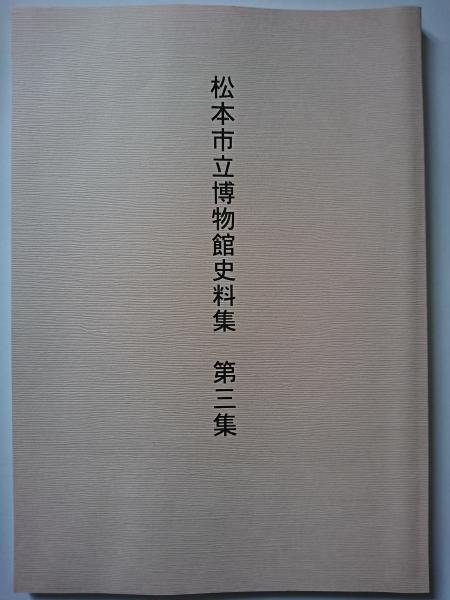 松本市立博物館史料集　第三集